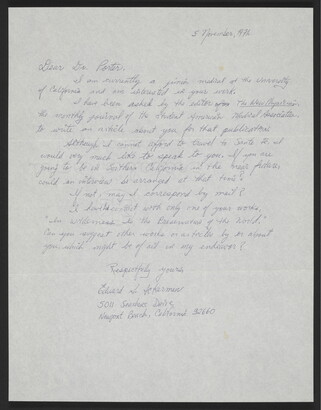 5 November, 1972
Dear Dr. Porter,
I am currently a junior medical at the University
of California and am interested in your work.
I have been asked by the editor of The New Physician
the monthly journal of the Student American Medical Association
to write an article about you for that publication.
Although I cannot afford to travel to Santa Fe, it
would very much like to speak to you. If you are
going to be in Southern California in the near future,
could an interview be arranged at that time?
If not, may I correspond by mail?
I am with only one of your works,
"In Wilderness Is the Preservation of the World."
Can you suggest other works or articles by or about
you which might be of aid in my endeavor?
Respectfully yours,
Edward
500
Newport Beach, California 92660